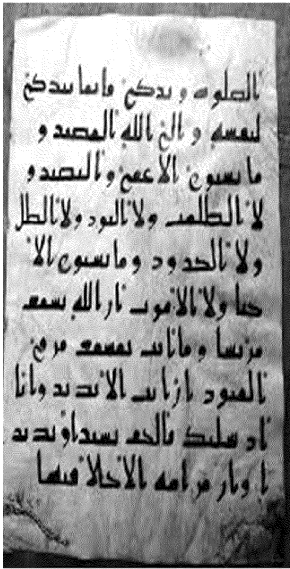 الصلوه و تزكى فانما يتزكى
لنفسه و الى الله المصير و
ما يستوى الاعمى و البصير و
لا الظلمت ولا النور ولا الظل
ولا الحرور و ما يستوى الا
حيا ولا الاموت ان الله يسمع
من يشا وما انت بمسمع من فى
القبور ان انت الا نذير وانا
ارسلنك بالحق بشيرا و نذير
ا وان من امه الا خلا فيها